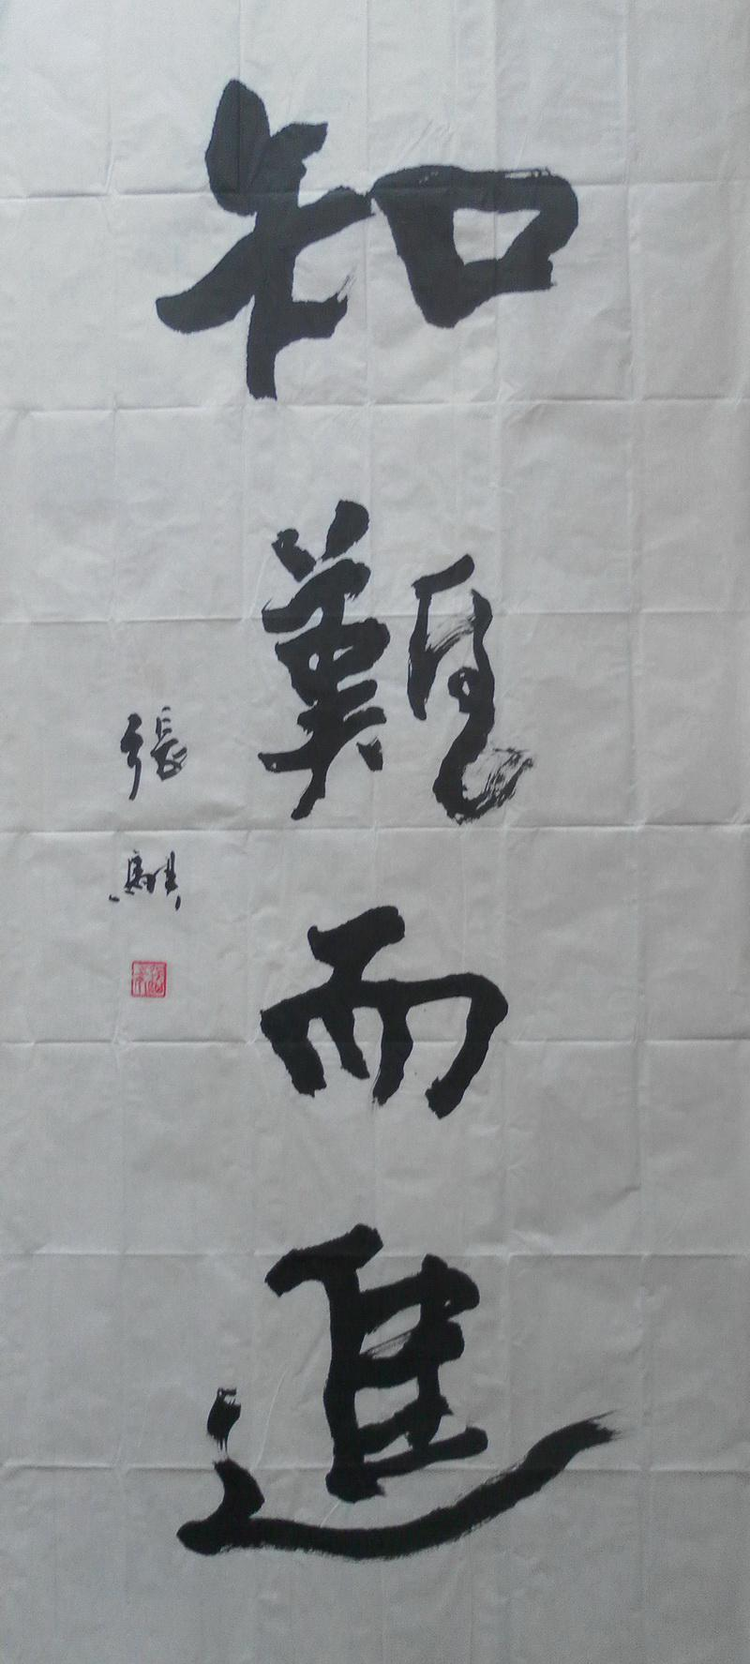 知難而進
張